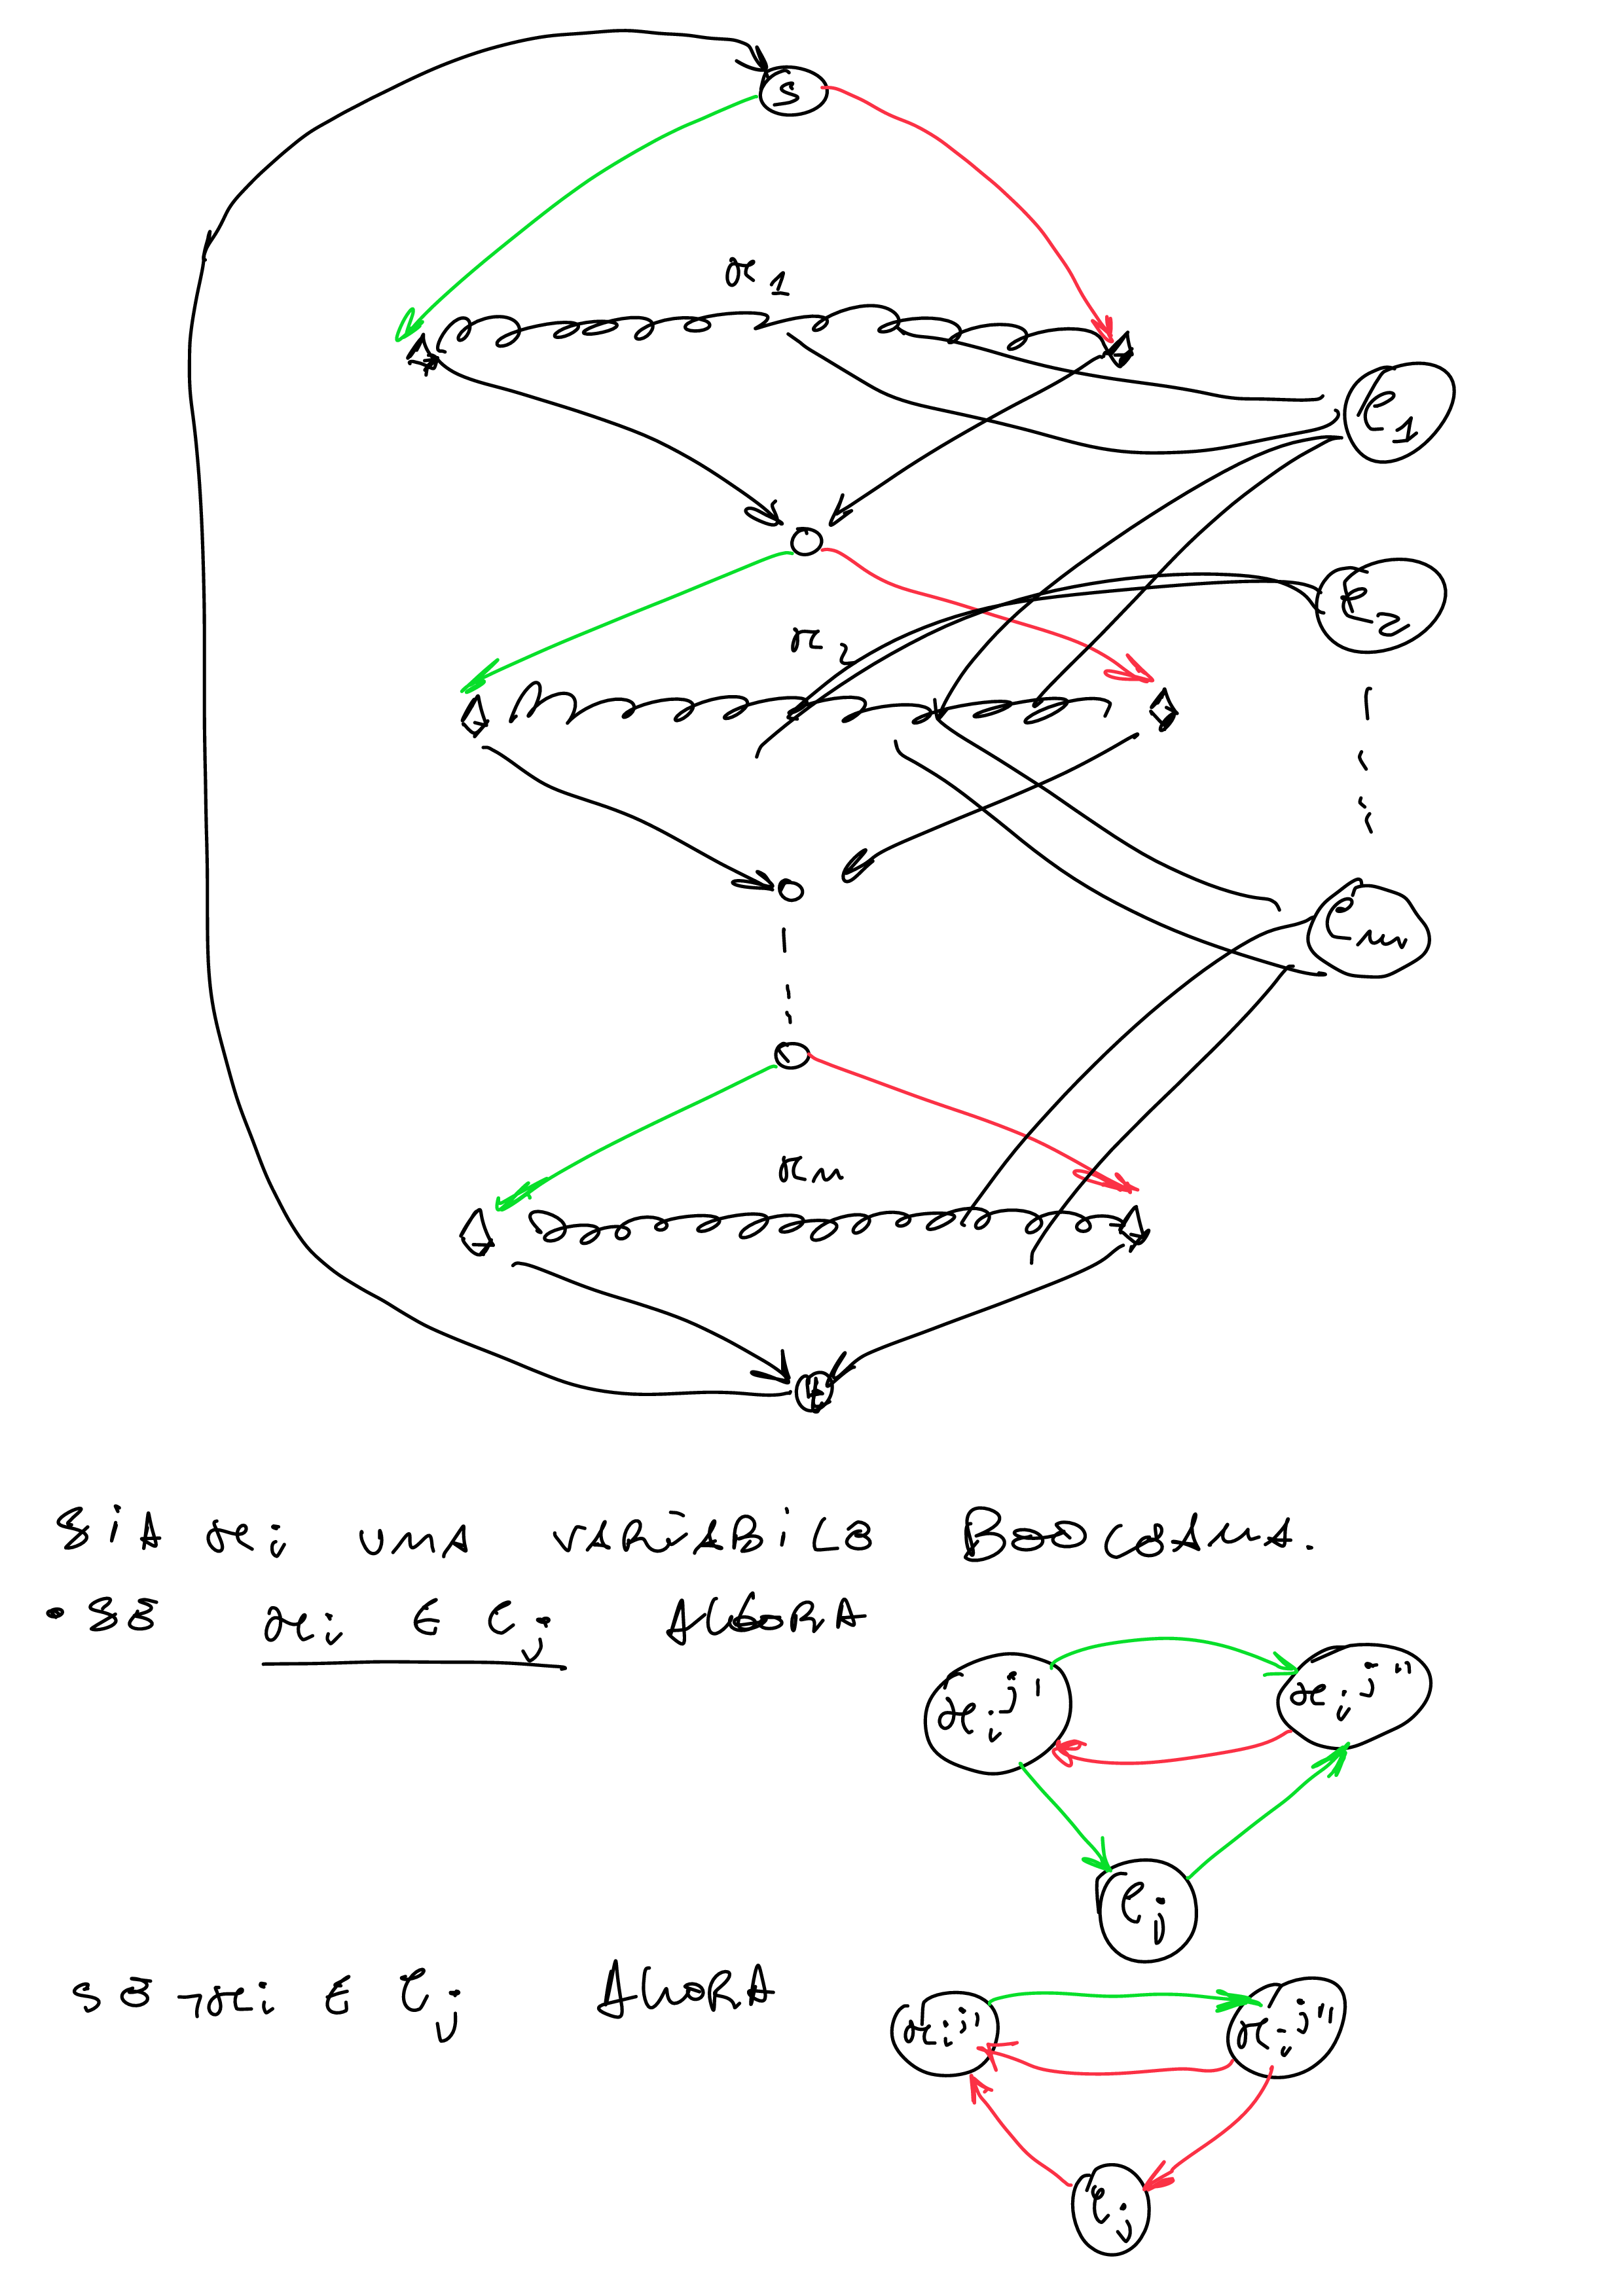 S
x1
C1
C2
x2
Cm
xn
t
SIA xi UNA VARIABILE BOOLEANA.
• SE xi ∈ Cj ALLORA
xij' xij''
Cj
SE ¬xi ∈ Cj ALLORA
xij' xij''
Cj